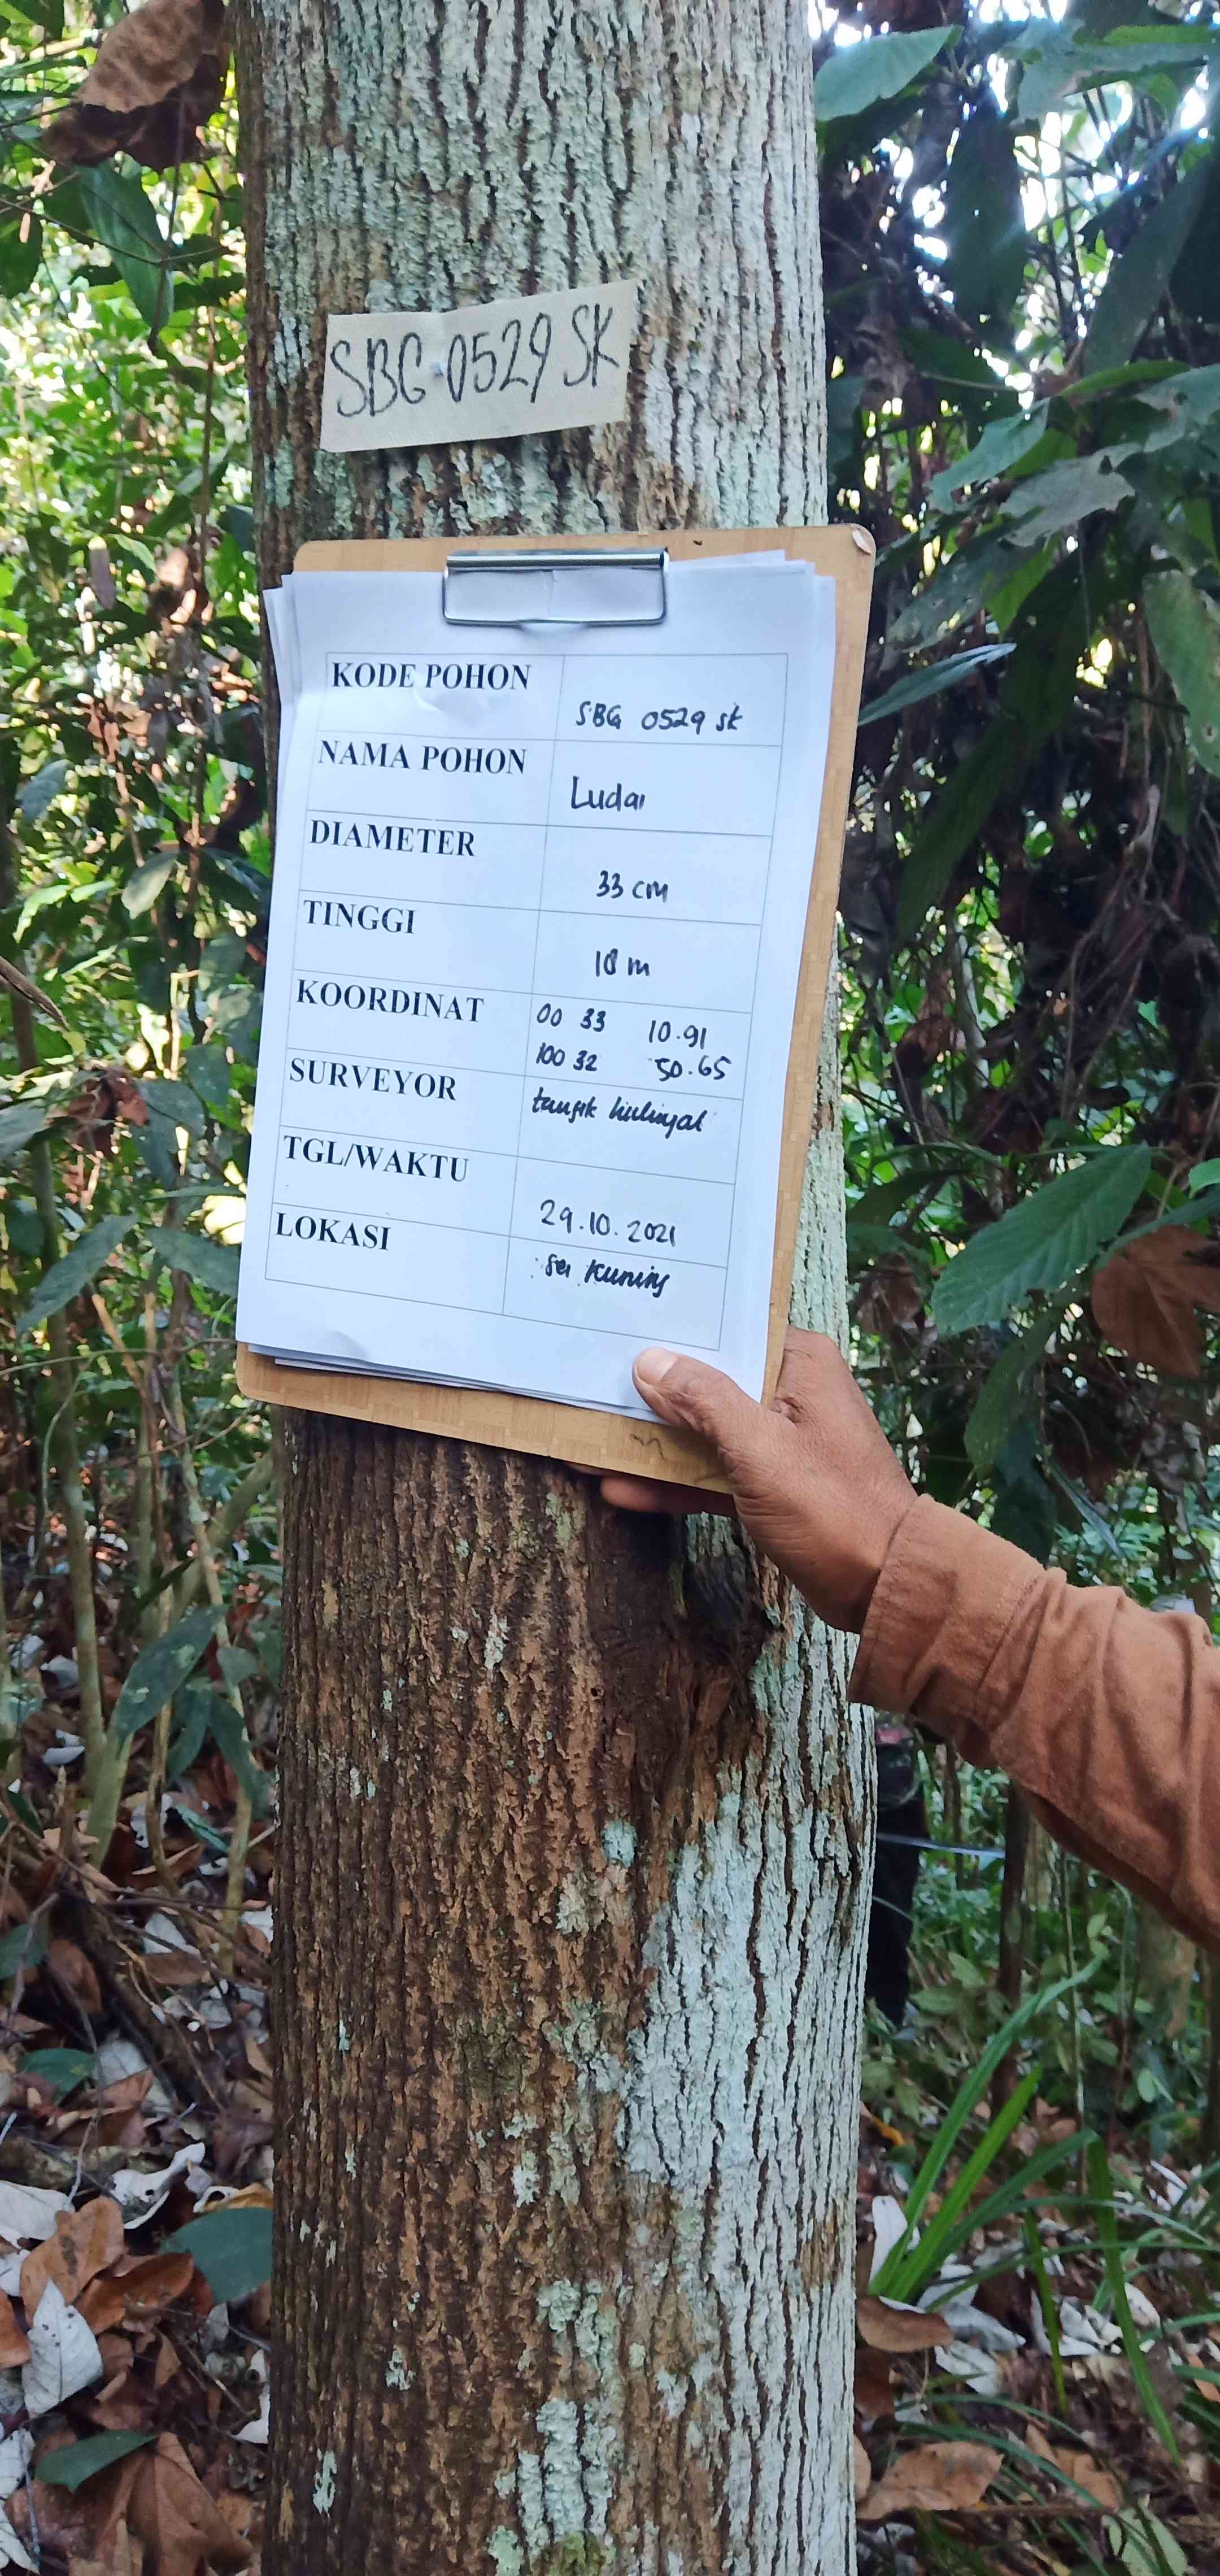 SBG 0529 SK
KODE POHON
SBG 0529 SK
NAMA POHON
Ludai
DIAMETER
33 cm
TINGGI
18 m
KOORDINAT
00 33 10.91
100 32 50.65
SURVEYOR
taufik
TGL/WAKTU
29.10.2021
LOKASI
Kuning